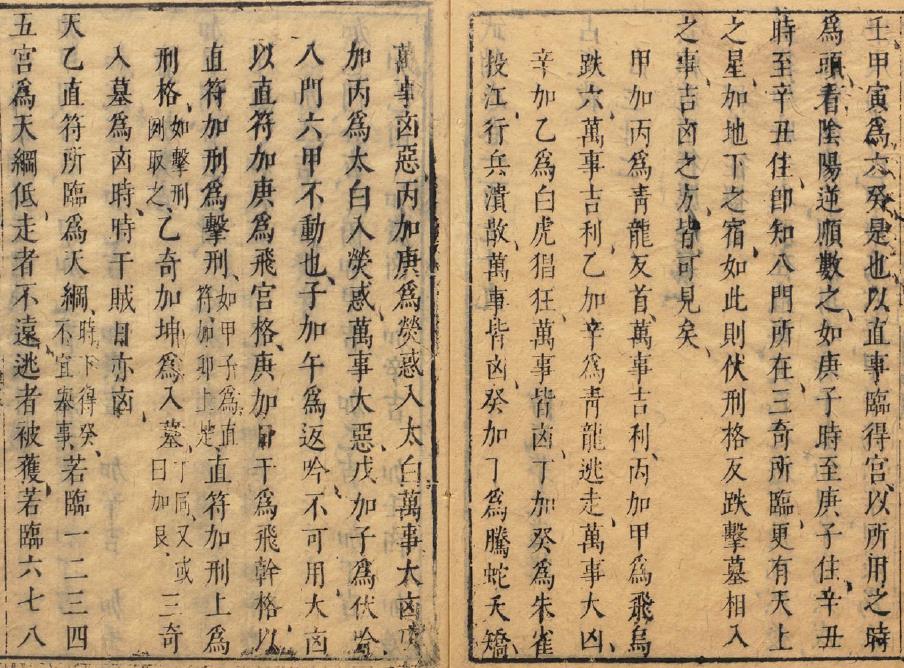 壬甲寅爲六癸是也、以直事臨得宮、以所用之時
爲頭、看陰陽逆順數之、如庚子時至庚子住、辛丑
時至辛丑住、卽知八門所在、三奇所臨、更有天上
之星、加地下之宿、如此則伏刑格反跌擊墓相入
之事、吉凶之方、皆可見矣、
甲加丙爲靑龍反首、萬事吉利、丙加甲爲飛鳥
跌穴、萬事吉利、乙加辛爲靑龍逃走、萬事大凶、
辛加乙爲白虎猖狂、萬事皆凶、丁加癸爲朱雀
投江、行兵潰散、萬事皆凶、癸加丁爲騰蛇夭矯、
萬事凶惡、丙加庚爲熒惑入太白、萬事大凶、庚
加丙爲太白入熒惑、萬事大惡、戊加子爲伏吟、
八門六甲不動也、子加午爲返吟、不可用、大凶
以直符加庚爲飛宮格、庚加日干爲飛幹格、以
直符加刑爲擊刑、如甲子爲直符加卯上是、直符加刑上爲
刑格、如擊刑例取之、乙奇加坤爲入墓、丁同、又或日加艮、三奇
入墓爲凶時、時干賊日亦凶、
天乙直符所臨爲天綱、時下得癸、不宜舉事、若臨一二三四
五宮爲天綱低、走者不遠、逃者被獲、若臨六七八